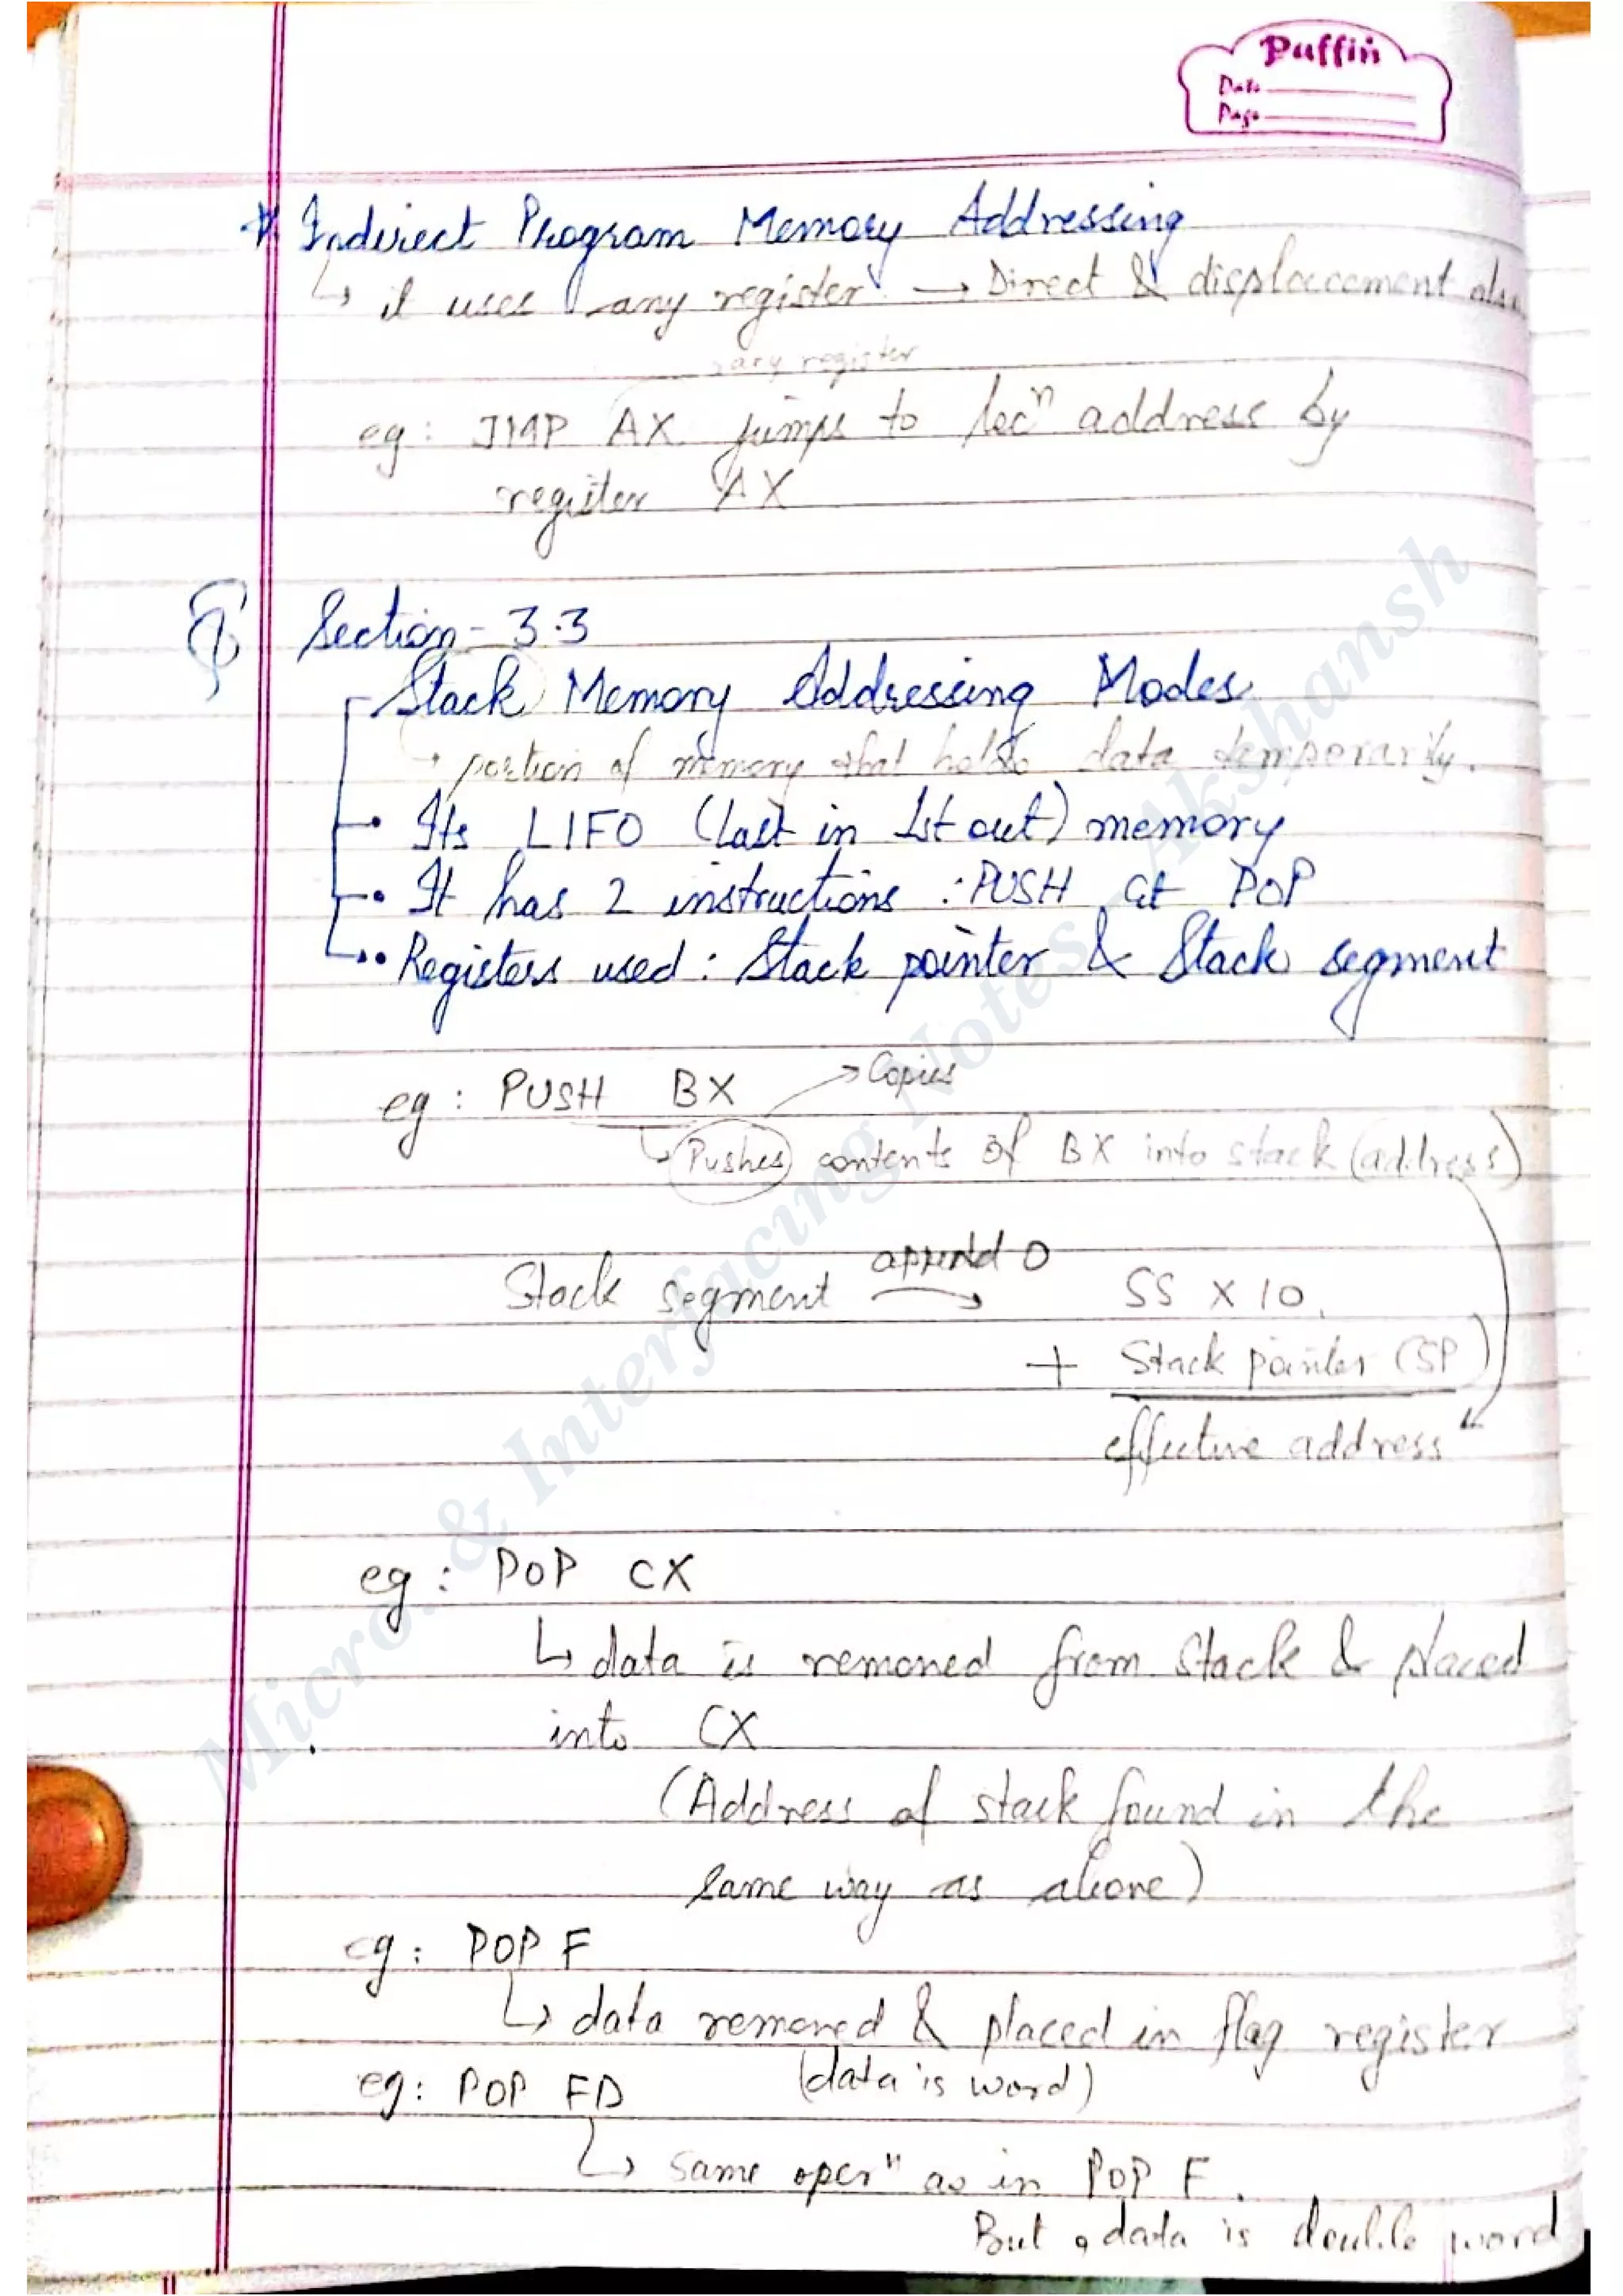 Puffin
Date
Page
* Indirect Program Memory Addressing
↳ it uses any register → Direct & displaccement also
any register
eg : JMP AX jumps to locⁿ address by
register AX
Section - 3.3
Stack Memory Addressing Modes
→ portion of memory that holds data temporarily.
• Its LIFO (last in 1st out) memory
• It has 2 instructions : PUSH & POP
• Registers used : Stack pointer & Stack segment
eg : PUSH BX → Copies
↳ Pushes contents of BX into stack (address)
Stack segment append 0 → SS X 10
+ Stack pointer (SP)
effective address
eg : POP CX
↳ data is removed from Stack & placed
into CX
(Address of stack found in the
same way as above)
eg : POP F
↳ data removed & placed in flag register
(data is word)
eg : POP FD
↳ same operⁿ as in POP F.
But , data is double word
Micro. & Interfacing Notes - Akshansh